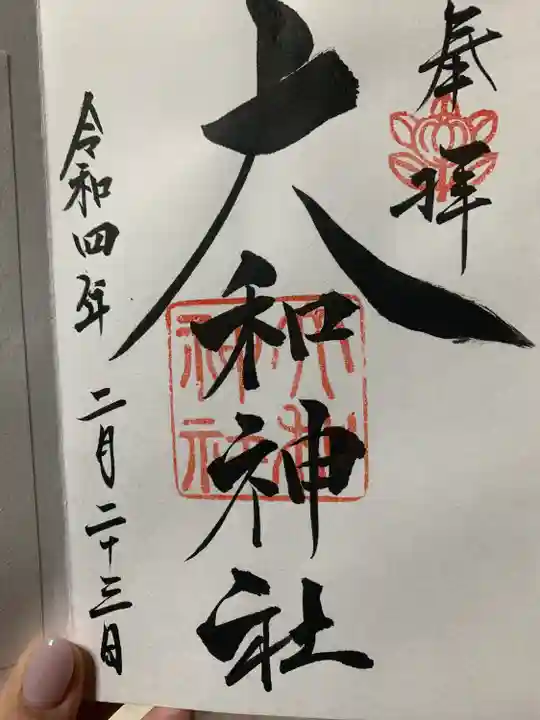 奉拝
大和神社
令和四年 二月二十三日